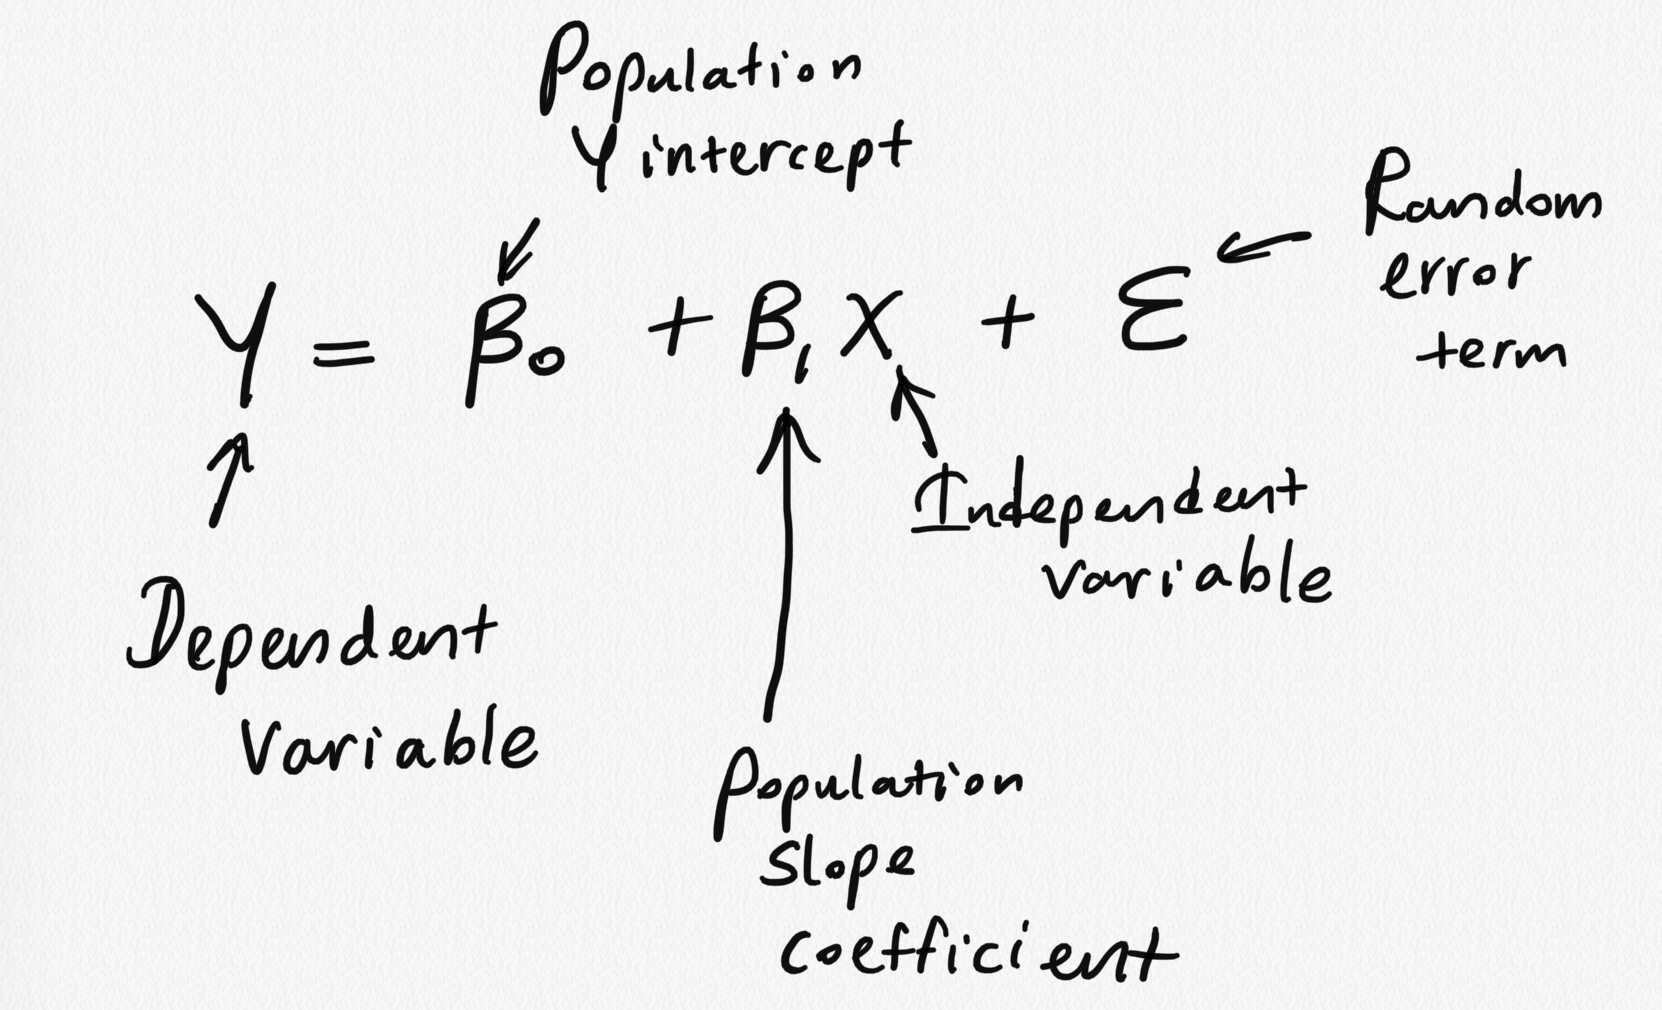 Population
Y intercept
Random
error
term
Y = β₀ + β₁ X + ε
Independent
variable
Dependent
Variable
Population
slope
coefficient